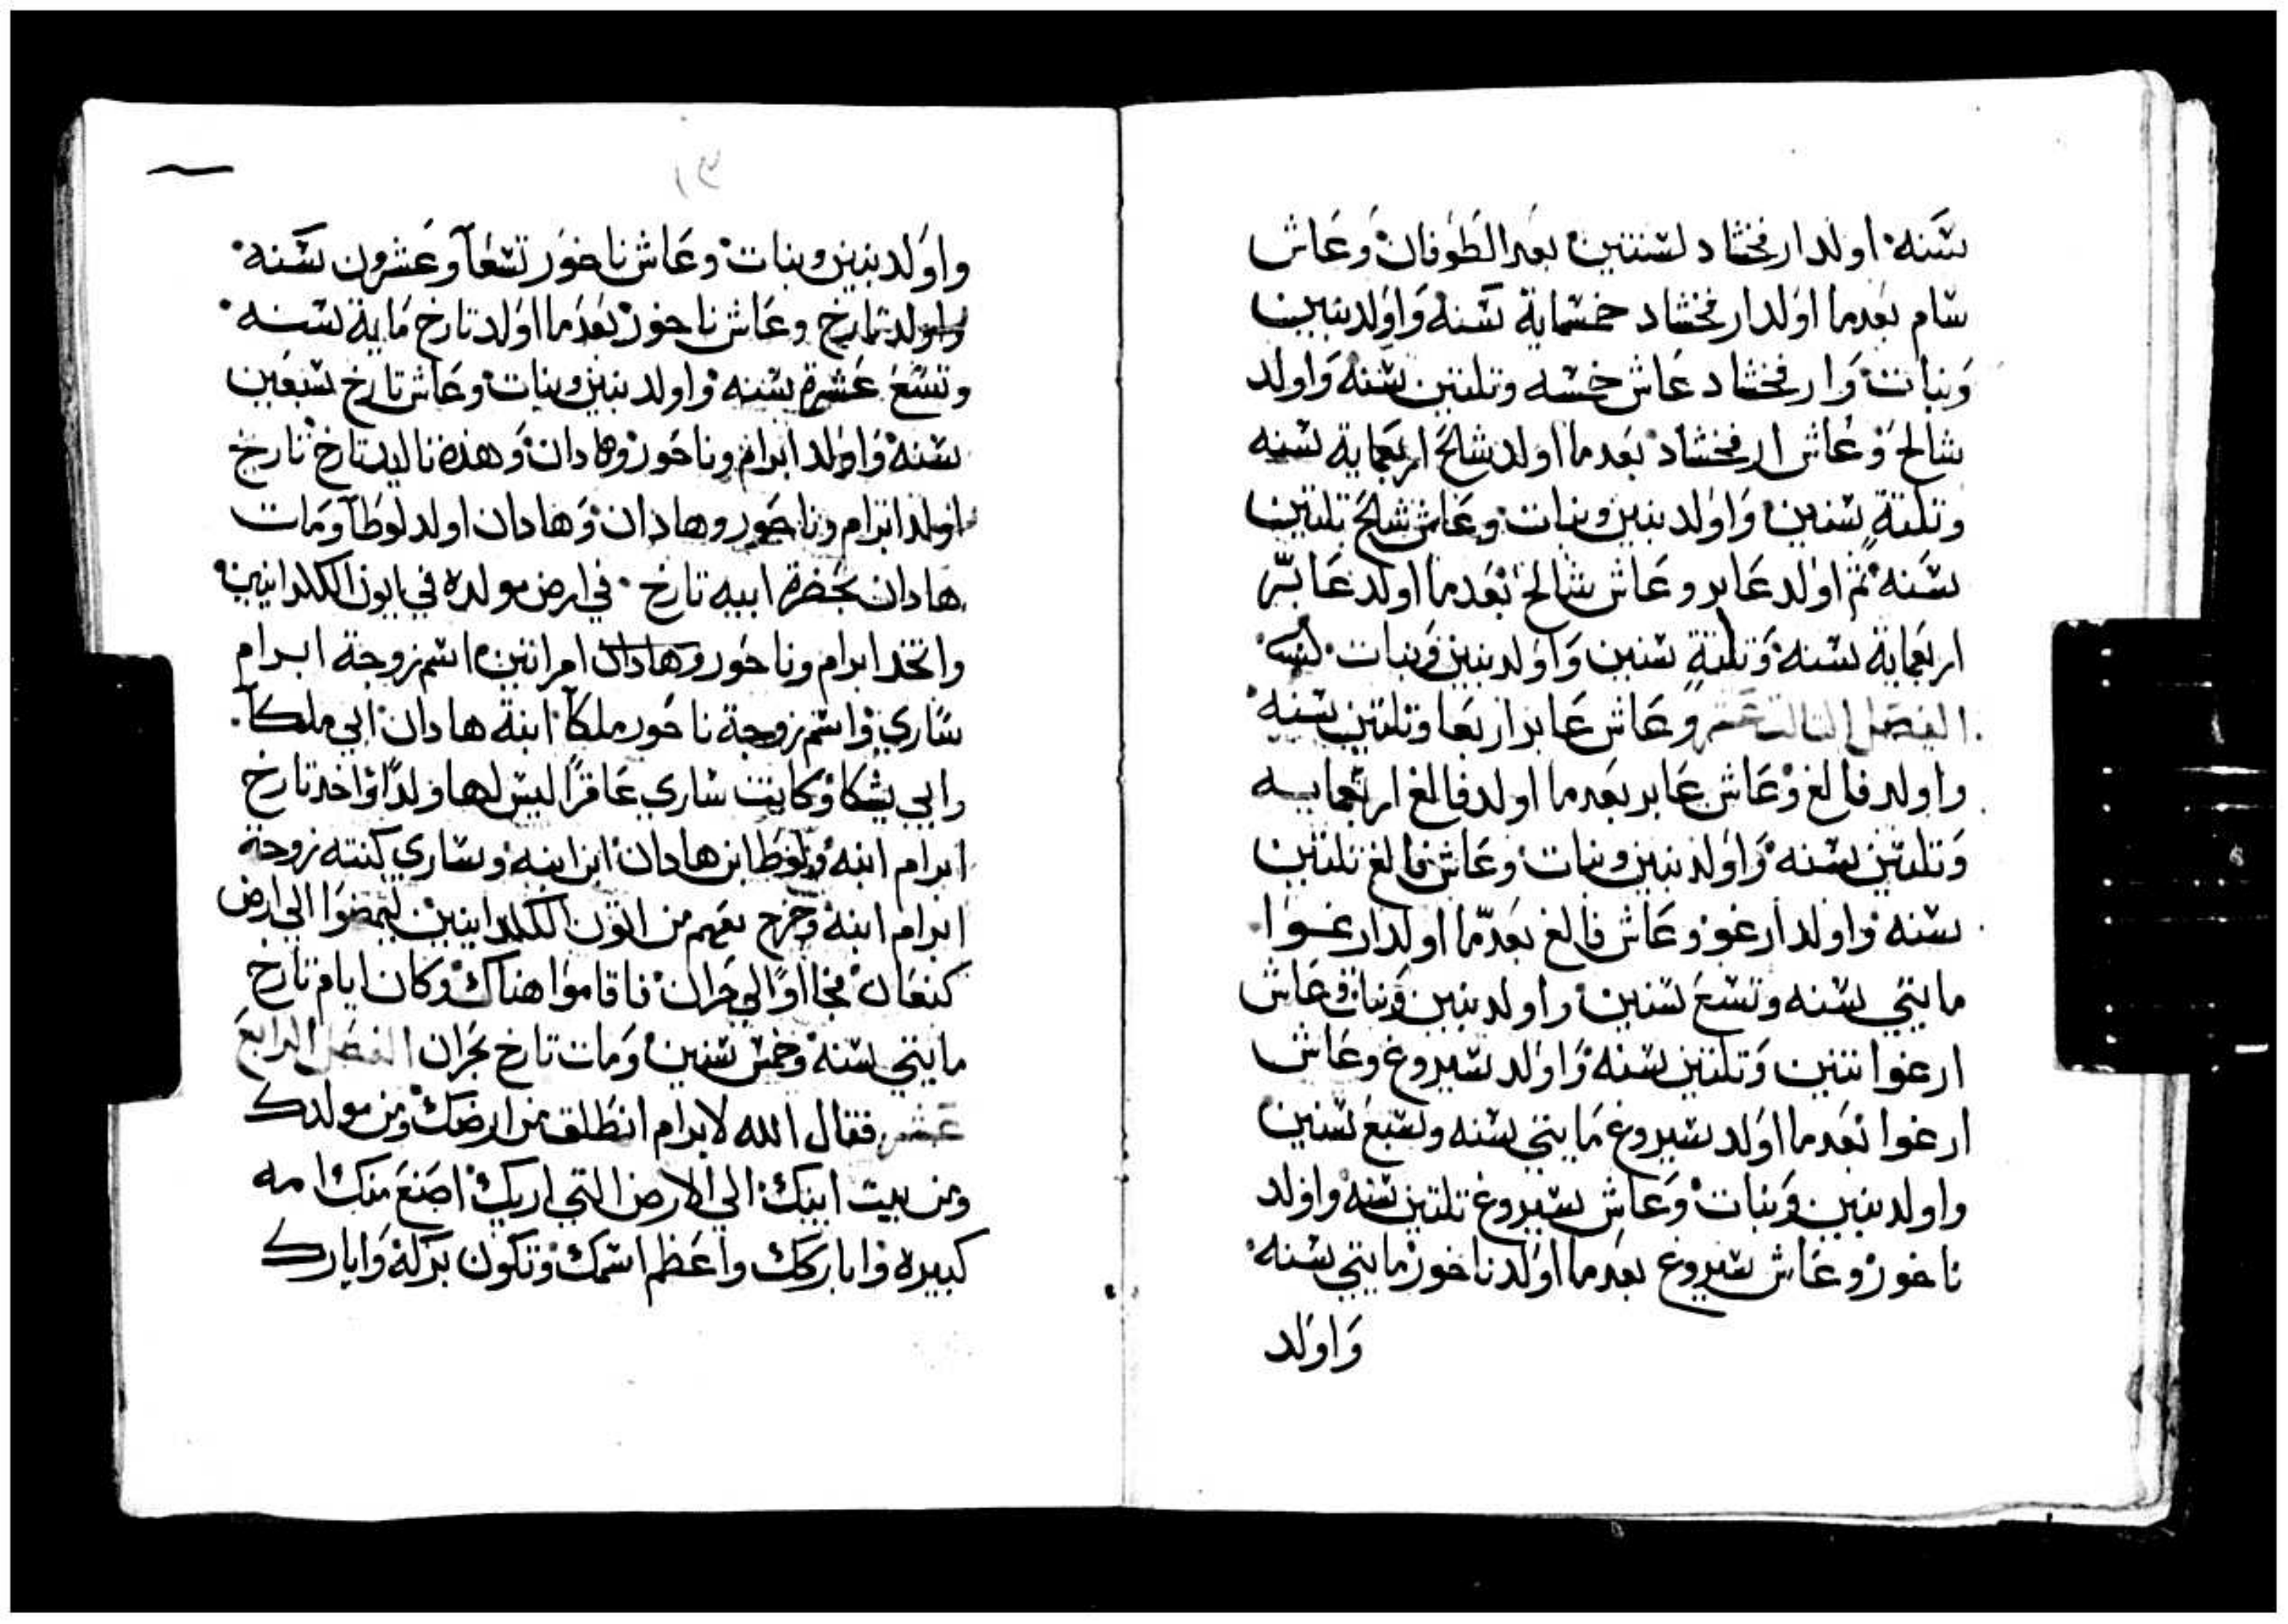 سنه اولد ارفخشاد لسنتين بعد الطوفان وعاش
سام بعدما اولد ارفخشاد خمسماية سنه واولد بنين
وبنات وارفخشاد عاش خمسه وتلتين سنه واولد
شالح وعاش ارفخشاد بعدما اولد شالح اربعماية سنه
وتلتة سنين واولد بنين وبنات وعاش شالح تلتين
سنه ثم اولد عابر وعاش شالح بعدما اولد عابر
اربعماية سنه وتلتة سنين واولد بنين وبنات
الفصل التالت عشر وعاش عابر اربعا وتلتين سنه
واولد فالغ وعاش عابر بعدما اولد فالغ اربعمايه
وتلتين سنه واولد بنين وبنات وعاش فالغ تلتين
سنه واولد ارغو وعاش فالغ بعدما اولد ارغوا
مايتي سنه وتسع سنين واولد بنين وبنات وعاش
ارغوا تنين وتلتين سنه واولد سيروغ وعاش
ارغوا بعدما اولد سيروغ مايتي سنه وسبع سنين
واولد بنين وبنات وعاش سيروغ تلتين سنه واولد
ناحور وعاش سيروغ بعدما اولد ناحور مايتي سنه
واولد
واولد بنين وبنات وعاش ناحور تسعا وعشرون سنه
واولد تارخ وعاش ناحور بعدما اولد تارخ ماية سنه
وتسع عشرة سنه واولد بنين وبنات وعاش تارخ سبعين
سنه واولد ابرام وناحور وهادان وهذه تاليد تارخ تارخ
اولد ابرام وناحور وهادان وهادان اولد لوطا ومات
هادان بحضرة ابيه تارخ في ارض مولده في ايون الكلدانيين
واتخد ابرام وناحور وهادان امراتين اسم زوجة ابرام
ساري واسم زوجة ناحور ملكا ابنة هادان ابي ملكا
وابي يشكا وكانت ساري عاقرا ليس لها ولد واخد تارخ
ابرام ابنه ولوطا ابن هادان ابن ابنه وساري كنته زوجة
ابرام ابنه وخرج بعهم من اتون الكلدانيين ليمضوا الي ارض
كنعان فجااوا الي حران فاقاموا هناك وكان ايام تارخ
مايتي سنه وخمس سنين ومات تارخ بحران الفصل الرابع
عشر فقال الله لابرام انطلق من ارضك ومن مولدك
ومن بيت ابيك الي الارض التي اريك اصنع منك امه
كبيره واباركك واعظم اسمك وتكون بركه وابارك